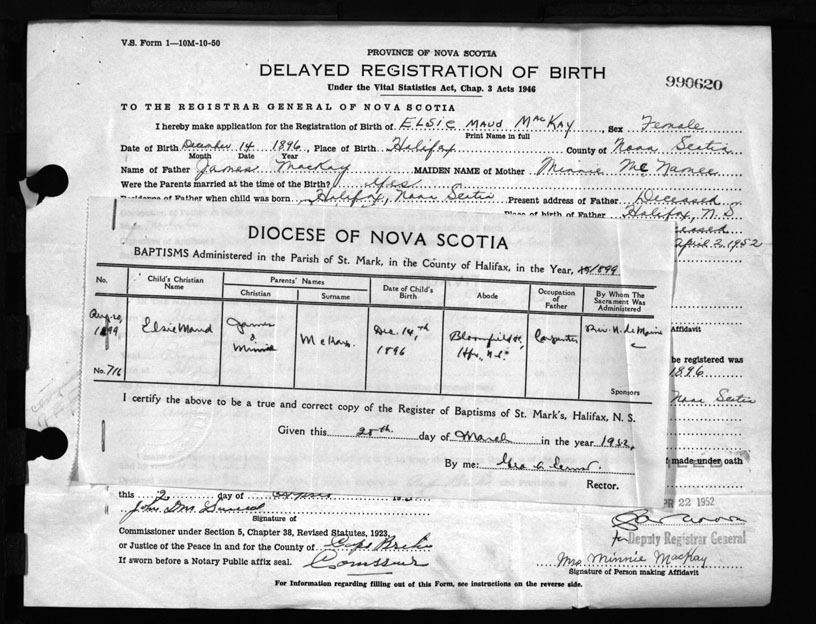 V.S. Form 1—10M-10-50
PROVINCE OF NOVA SCOTIA
DELAYED REGISTRATION OF BIRTH
990620
Under the Vital Statistics Act, Chap. 3 Acts 1946
TO THE REGISTRAR GENERAL OF NOVA SCOTIA
I hereby make application for the Registration of Birth of ELSIE MAUD MACKAY, Sex Female
Print Name in full
Date of Birth December 14 1896, Place of Birth Halifax County of Nova Scotia
Month Date Year
Name of Father James MacKay MAIDEN NAME of Mother Minnie McNamee
Were the Parents married at the time of the Birth? Yes
Residence of Father when child was born Halifax, Nova Scotia Present address of Father Deceased
Place of birth of Father Halifax, N.S.
April 2, 1952
DIOCESE OF NOVA SCOTIA
BAPTISMS Administered in the Parish of St. Mark, in the County of Halifax, in the Year, 1899
No. Child's Christian Name Parents' Names Christian Surname Date of Child's Birth Abode Occupation of Father By Whom The Sacrament Was Administered
1899 Elsie Maud James & Minnie McKay Dec. 14th 1896 Bloomfield St, Hfx, N.S. Carpenter Rev. N. LeMoine
No. 716
Sponsors
Affidavit
be registered was
1896
Nova Scotia
I certify the above to be a true and correct copy of the Register of Baptisms of St. Mark's, Halifax, N. S.
Given this 20th day of March in the year 1952,
By me:
Rector.
made under oath
this 2 day of
PR 22 1952
Signature of
Commissioner under Section 5, Chapter 38, Revised Statutes, 1923,
or Justice of the Peace in and for the County of Cape Breton
for Deputy Registrar General
If sworn before a Notary Public affix seal.
Mrs. Minnie MacKay
Signature of Person making Affidavit
For Information regarding filling out of this Form, see instructions on the reverse side.